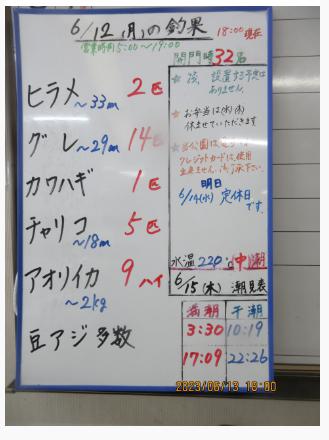 6/12(月)の釣果
18:00現在
営業時間 5:00〜19:00
開門時 32名
ヒラメ 2匹
〜33cm
グレ 14匹
〜29cm
カワハギ 1匹
チャリコ 5匹
〜18cm
アオリイカ 9ハイ
〜2kg
豆アジ 多数
設置する予定は
ありません。
★ お弁当は(水)(木)
休ませていただきます
★ 当公園は
クレジットカードは、使用
出来ません。ご了承下さい。
明日
6/14(水) 定休日
です。
水温 22.0℃ 中潮
6/15(木) 潮見表
満潮 干潮
3:30 10:19
17:09 22:26
2023/06/13 18:00